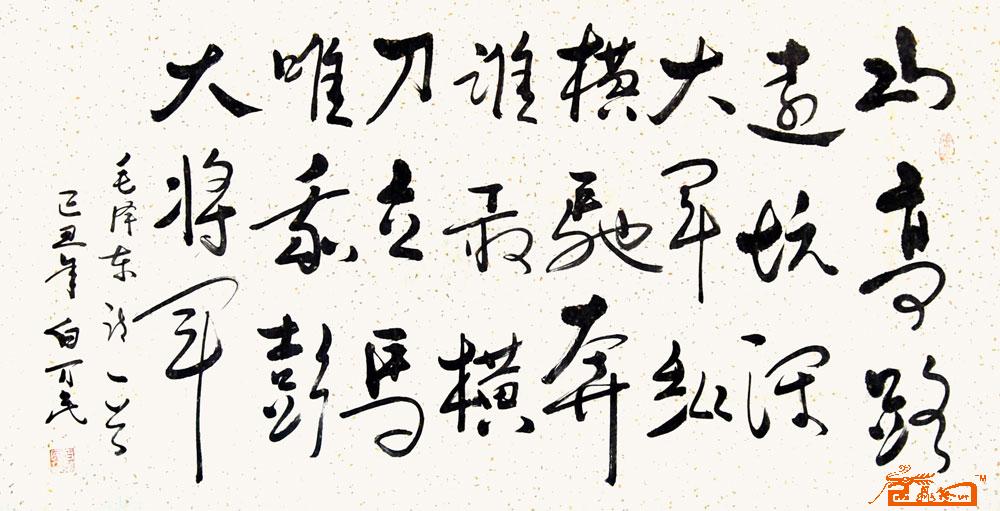 山高路
遠坑深
大军纵
横馳奔
谁敢横
刀立馬
唯我彭
大将军
毛泽东诗一首
己丑年白万民